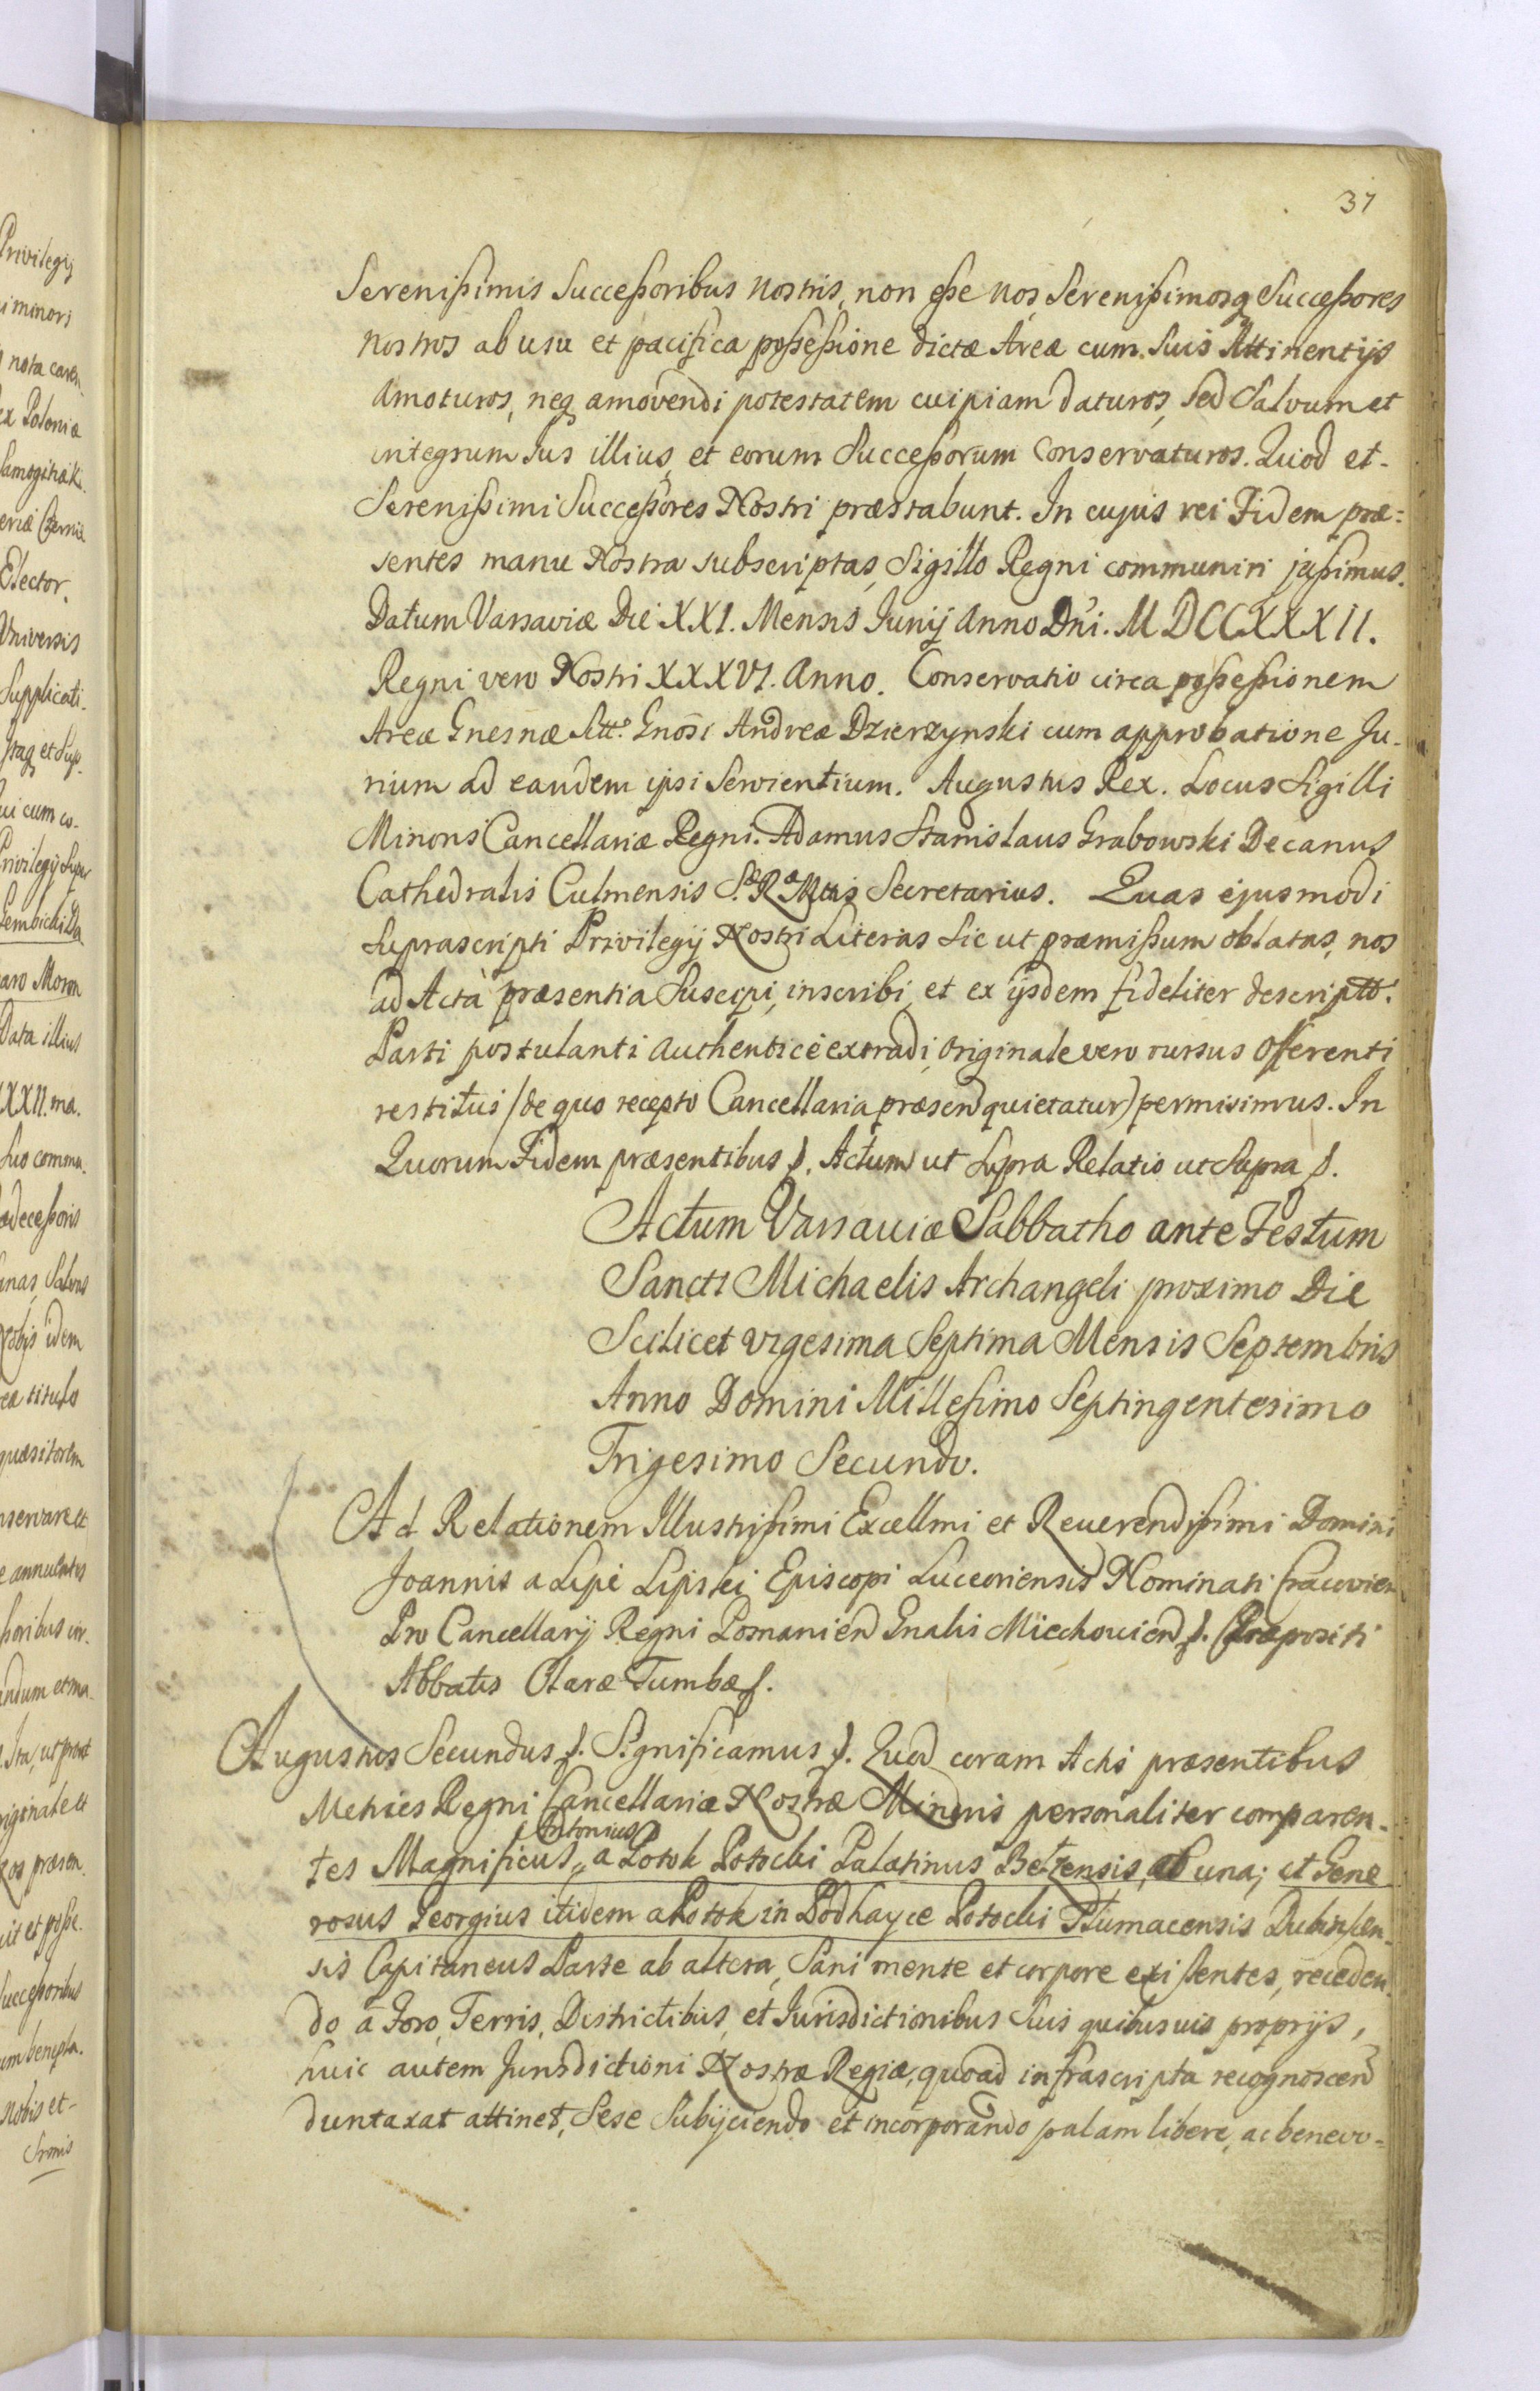 37
Serenissimis Successoribus nostris, non esse nos, Serenissimosq Successores
nostros ab usu et pacifica possessione dictæ Areæ cum Suis Attinentijs
amoturos, neq amovendi potestatem cuipiam daturos, Sed Salvum et
integrum Jus illius, et eorum Successorum Conservaturos. Quod et
Serenissimi Successores Nostri præstabunt. In cujus rei Fidem præ=
sentes manu Nostra subscriptas, Sigillo Regni communiri jussimus.
Datum Varsaviæ Die XXI. Mensis Junij Anno Dni. MDCCXXXII.
Regni vero Nostri XXXVI. Anno. Conservatio circa possessionem
Areæ Gnesnæ Gnosi Andreæ Dzierzynski cum approbatione Ju-
rium ad eandem ipsi Servientium. Augustus Rex. Locus Sigilli
Minoris Cancellariæ Regni. Adamus Stanislaus Grabowski Decanus
Cathedralis Culmensis S. R. Mttis Secretarius. Quas ejusmodi
Suprascripti Privilegij Nostri Literas Sic ut præmissum oblatas, nos
ad Acta præsentia Suscipi, inscribi, et ex ijsdem fideliter descript.
Parti postulanti Authentice extradi, Originale vero rursus Offerenti
restitui (de quo recepto Cancellaria præsen quietatur) permisimus. In
Quorum Fidem præsentibus s. Actum ut Supra Relatio ut Supra s.
Actum Varsaviæ Sabbatho ante Festum
Sancti Michaelis Archangeli proximo Die
Scilicet vigesima Septima Mensis Septembris
Anno Domini Millesimo Septingentesimo
Trigesimo Secundo.
Ad Relationem Illustrissimi Excellmi et Reverendissimi Domini
Joannis a Lipe Lipski Episcopi Luceoriensis Nominati Cracovien
Pro Cancellarij Regni Posnanien Gnalis Miechovien s. Præpositi
Abbatis Claræ Tumbæ s.
Augustus Secundus s. Significamus s. Quod coram Actis præsentibus
Metrices Regni Cancellariæ Nostræ Minoris personaliter comparen-
Antonius
tes Magnificus a Potok Potocki Palatinus Belzensis, ab una; et Gene
rosus Georgius itidem a Potok in Podhayce Potocki Tlumacensis
sis Capitaneus Parte ab altera, Sani mente et corpore existentes, receden
do a Foro, Terris, Districtibus, et Jurisdictionibus Suis quibusvis proprijs,
huic autem Jurisdictioni Nostræ Regiæ, quoad infrascripta recognoscen
duntaxat attinet, Sese Subijciendo et incorporando palam libere, ac benevo=